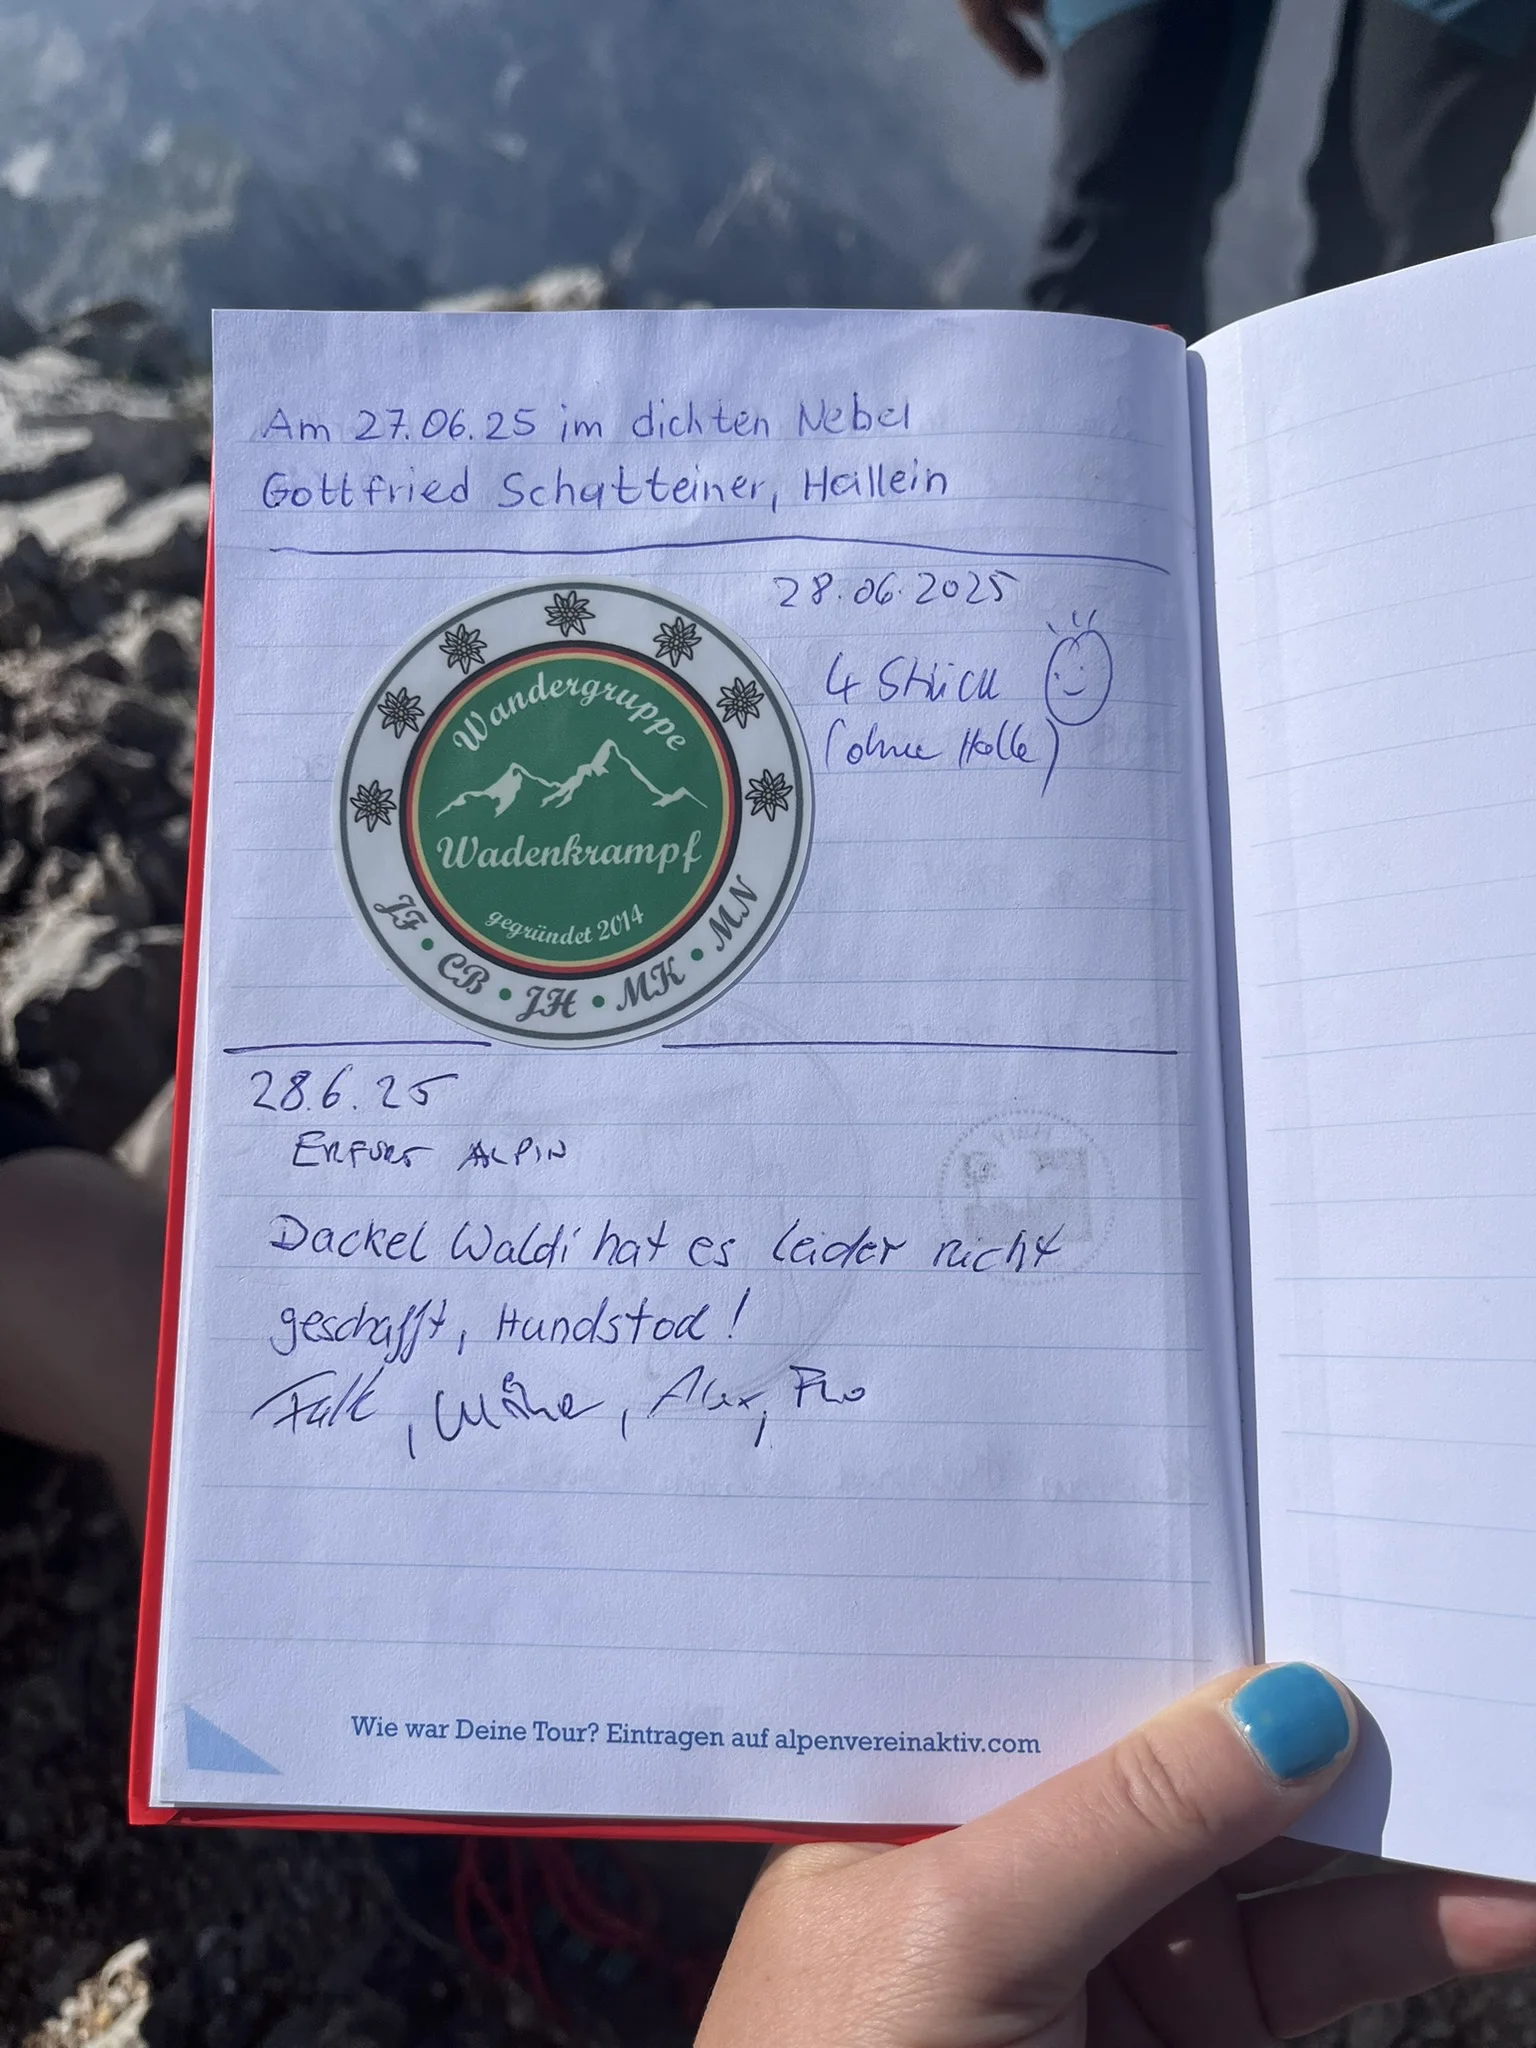 Am 27.06.25 im dichten Nebel
Gottfried Schatteiner, Hallein
28.06.2025
4 Stück
(ohne Holle)
Wandergruppe
Wadenkrampf
gegründet 2014
JF • CB • JH • MK • MN
28.6.25
ERFURT ALPIN
Dackel Waldi hat es leider nicht
geschafft, Hundstod!
Falk, Alex,
Wie war Deine Tour? Eintragen auf alpenvereinaktiv.com